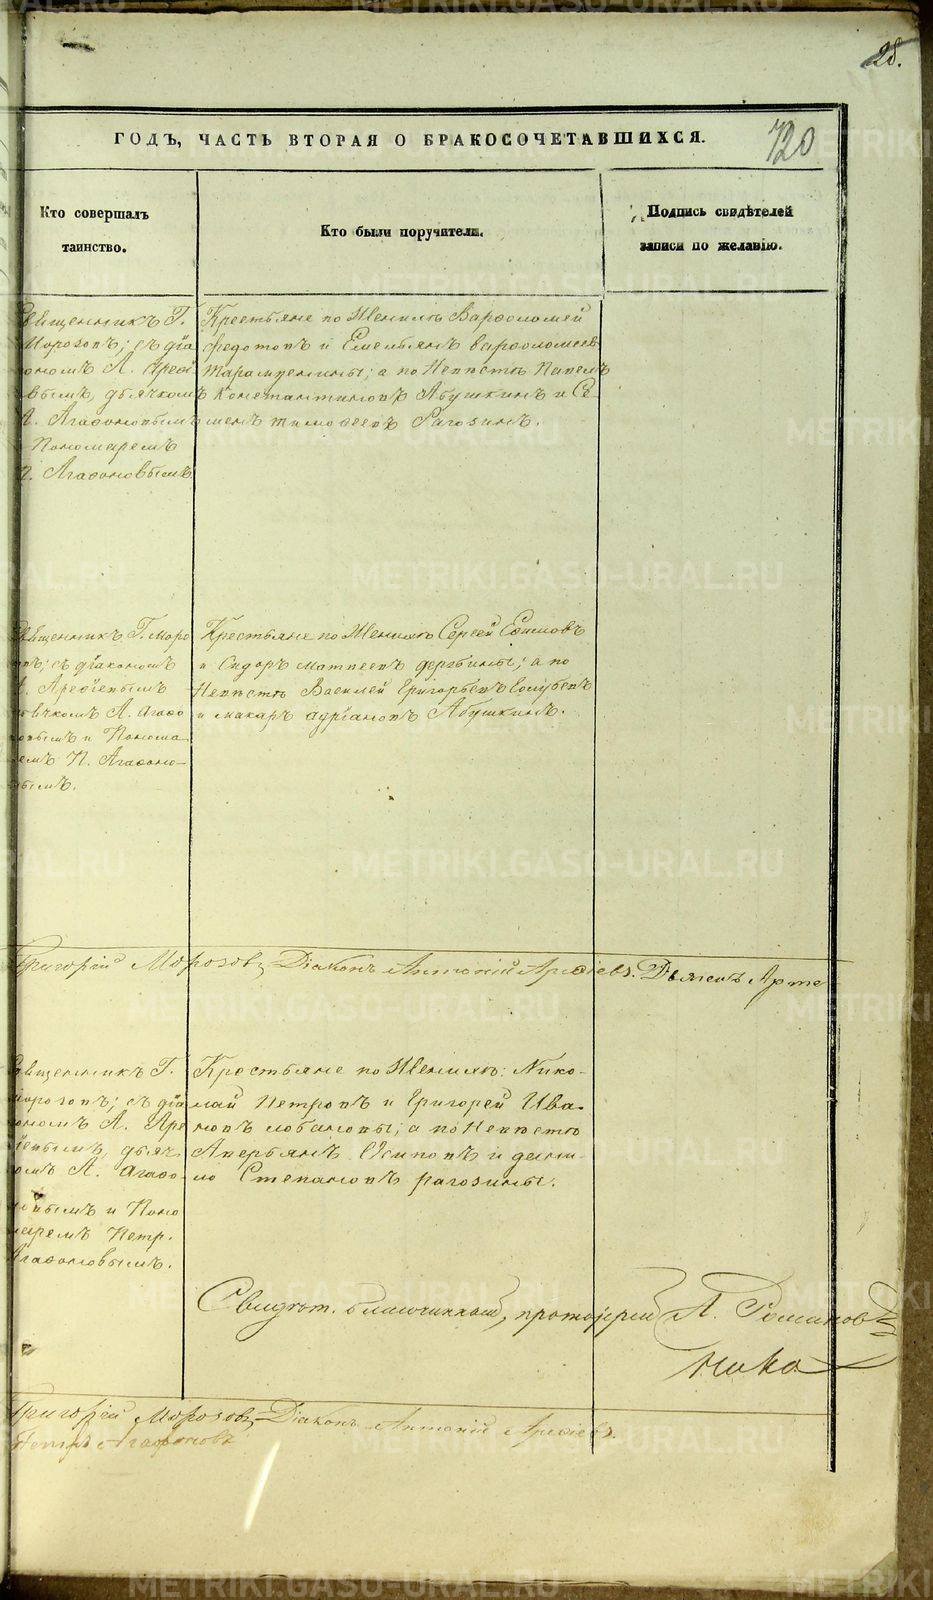 28.
ГОДЪ, ЧАСТЬ ВТОРАЯ О БРАКОСОЧЕТАВШИХСЯ.
720
Кто совершалъ
таинство.
Кто были поручители.
Подпись свидѣтелей
записи по желанію.
Священникъ Г.
Морозовъ; съ діа
кономъ А. Арефі
евымъ, дьячкомъ
А. Агафоновымъ
и Пономаремъ
П. Агафоновымъ
Крестьяне по Женихѣ Варфоломей
Федотовъ и Емельянъ Варфоломеев
а по Невѣстѣ Павелъ
Константиновъ Абушкинъ и Се-
менъ Тимофеевъ Рагозинъ.
Священникъ Г. Моро
зовъ; съ діакономъ
А. Арефіевымъ
дьячкомъ А. Агафо
новымъ и Понома-
ремъ П. Агафоно-
вымъ.
Крестьяне по Женихѣ Сергей Ефимовъ
и Сидоръ Матвеевъ а по
Невѣстѣ Василей Григорьевъ Голубевъ
и Макаръ Адріановъ Абушкинъ.
Григорій Морозовъ, Діаконъ Антоній Арефіевъ. Дьячекъ Арте
Священникъ Г.
Морозовъ; съ діа
кономъ А. Аре
фіевымъ, дьяч-
комъ А. Агафо-
новымъ и Поно
маремъ Петр.
Агафоновымъ.
Крестьяне по Женихѣ: Нико-
лай Петровъ и Григорей Ива-
новъ Лобановы; а по Невѣстѣ
Аверьянъ Осиповъ и Дани-
ло Степановъ Рагозины.
Свидѣт. благочинный, протоіерей А. Романов
Григорій Морозовъ, Діаконъ Антоній Арефіевъ.
Петръ Агафоновъ
METRIKI.GASO-URAL.RU